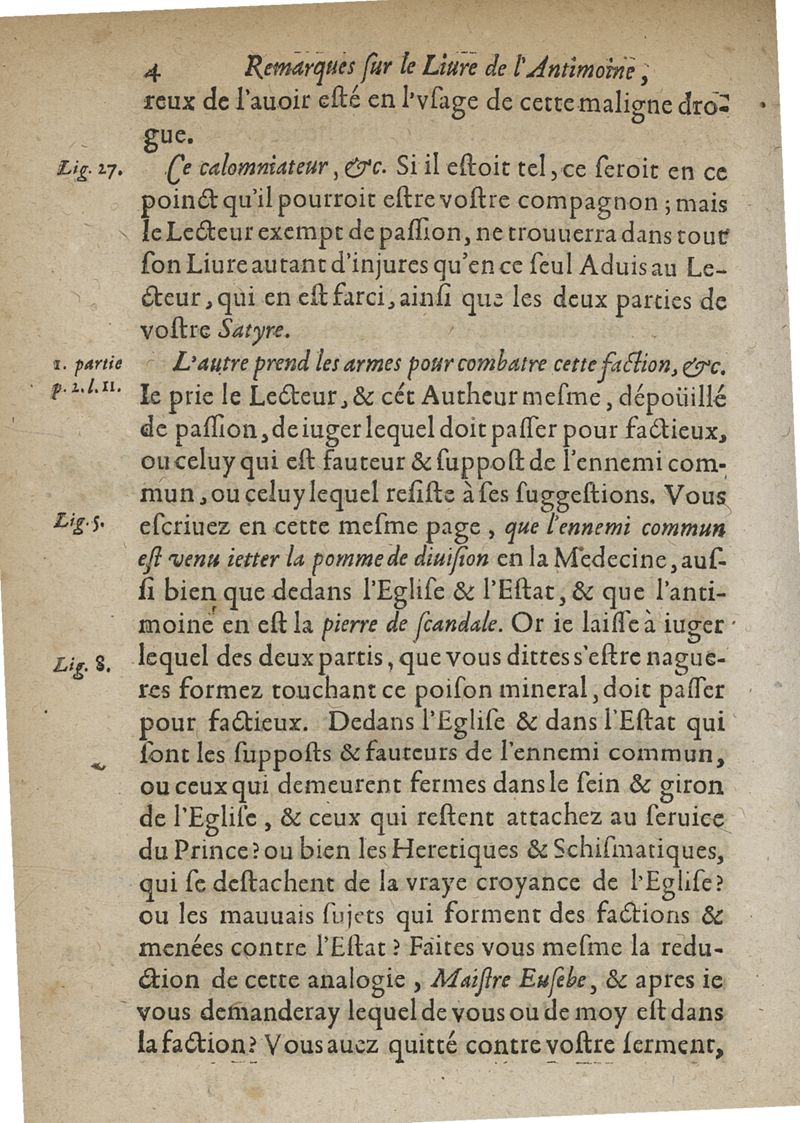 4 Remarques ſur le Liure de l'Antimoine,
reux de l'auoir eſté en l'vſage de cette maligne dro-
gue.
Lig. 27. Ce calomniateur, &c. Si il eſtoit tel, ce ſeroit en ce
poinct qu'il pourroit eſtre voſtre compagnon ; mais
le Lecteur exempt de paſſion, ne trouuerra dans tout
ſon Liure autant d'injures qu'en ce ſeul Aduis au Le-
cteur, qui en eſt farci, ainſi que les deux parties de
voſtre Satyre.
1. partie L'autre prend les armes pour combatre cette faction, &c.
p. 2. l. 11. Ie prie le Lecteur, & cét Autheur meſme, dépoüillé
de paſſion, de iuger lequel doit paſſer pour factieux,
ou celuy qui eſt fauteur & ſuppoſt de l'ennemi com-
mun, ou celuy lequel reſiſte à ſes ſuggeſtions. Vous
Lig. 5. eſcriuez en cette meſme page, que l'ennemi commun
eſt venu ietter la pomme de diuiſion en la Medecine, auſ-
ſi bien que dedans l'Egliſe & l'Eſtat, & que l'anti-
moine en eſt la pierre de ſcandale. Or ie laiſſe à iuger
Lig. 8. lequel des deux partis, que vous dittes s'eſtre nague-
res formez touchant ce poiſon mineral, doit paſſer
pour factieux. Dedans l'Egliſe & dans l'Eſtat qui
ſont les ſuppoſts & fauteurs de l'ennemi commun,
ou ceux qui demeurent fermes dans le ſein & giron
de l'Egliſe, & ceux qui reſtent attachez au ſeruice
du Prince? ou bien les Heretiques & Schiſmatiques,
qui ſe deſtachent de la vraye croyance de l'Egliſe?
ou les mauuais ſujets qui forment des factions &
menées contre l'Eſtat ? Faites vous meſme la redu-
ction de cette analogie, Maiſtre Euſebe, & apres ie
vous demanderay lequel de vous ou de moy eſt dans
la faction? Vous auez quitté contre voſtre ſerment,